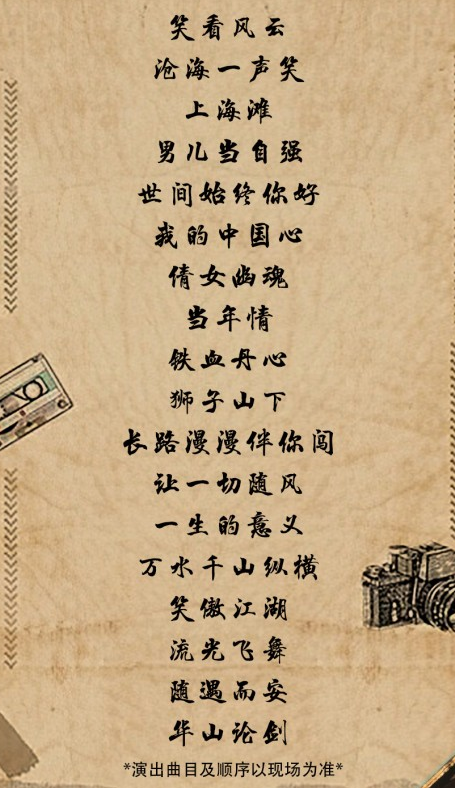 笑看风云
沧海一声笑
上海滩
男儿当自强
世间始终你好
我的中国心
倩女幽魂
当年情
铁血丹心
狮子山下
长路漫漫伴你闯
让一切随风
一生的意义
万水千山纵横
笑傲江湖
流光飞舞
随遇而安
华山论剑
*演出曲目及顺序以现场为准*